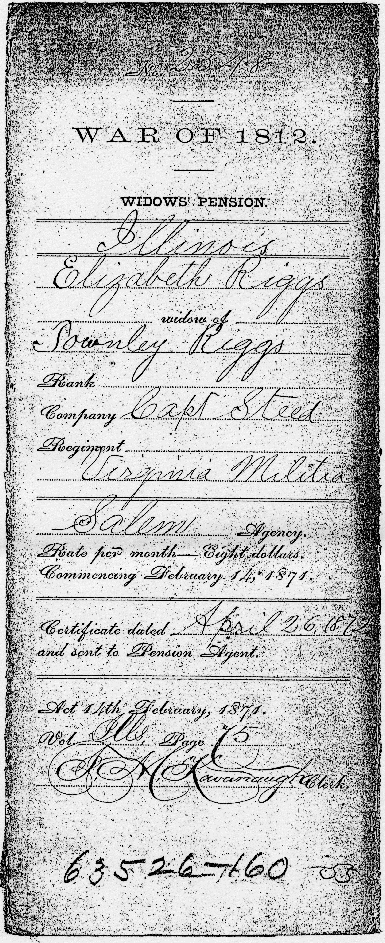 WAR OF 1812.
WIDOWS' PENSION.
Illinois
Elizabeth Riggs
widow of
Townley Riggs
Rank
Company Capt Steed
Regiment
Virginia Militia
Salem Agency.
Rate per month—Eight dollars.
Commencing February 14, 1871.
Certificate dated April 26, 1872
and sent to Pension Agent.
Act 14th February, 1871.
Vol. Ills, Page 75
Kavanaugh Clerk.
63526-160